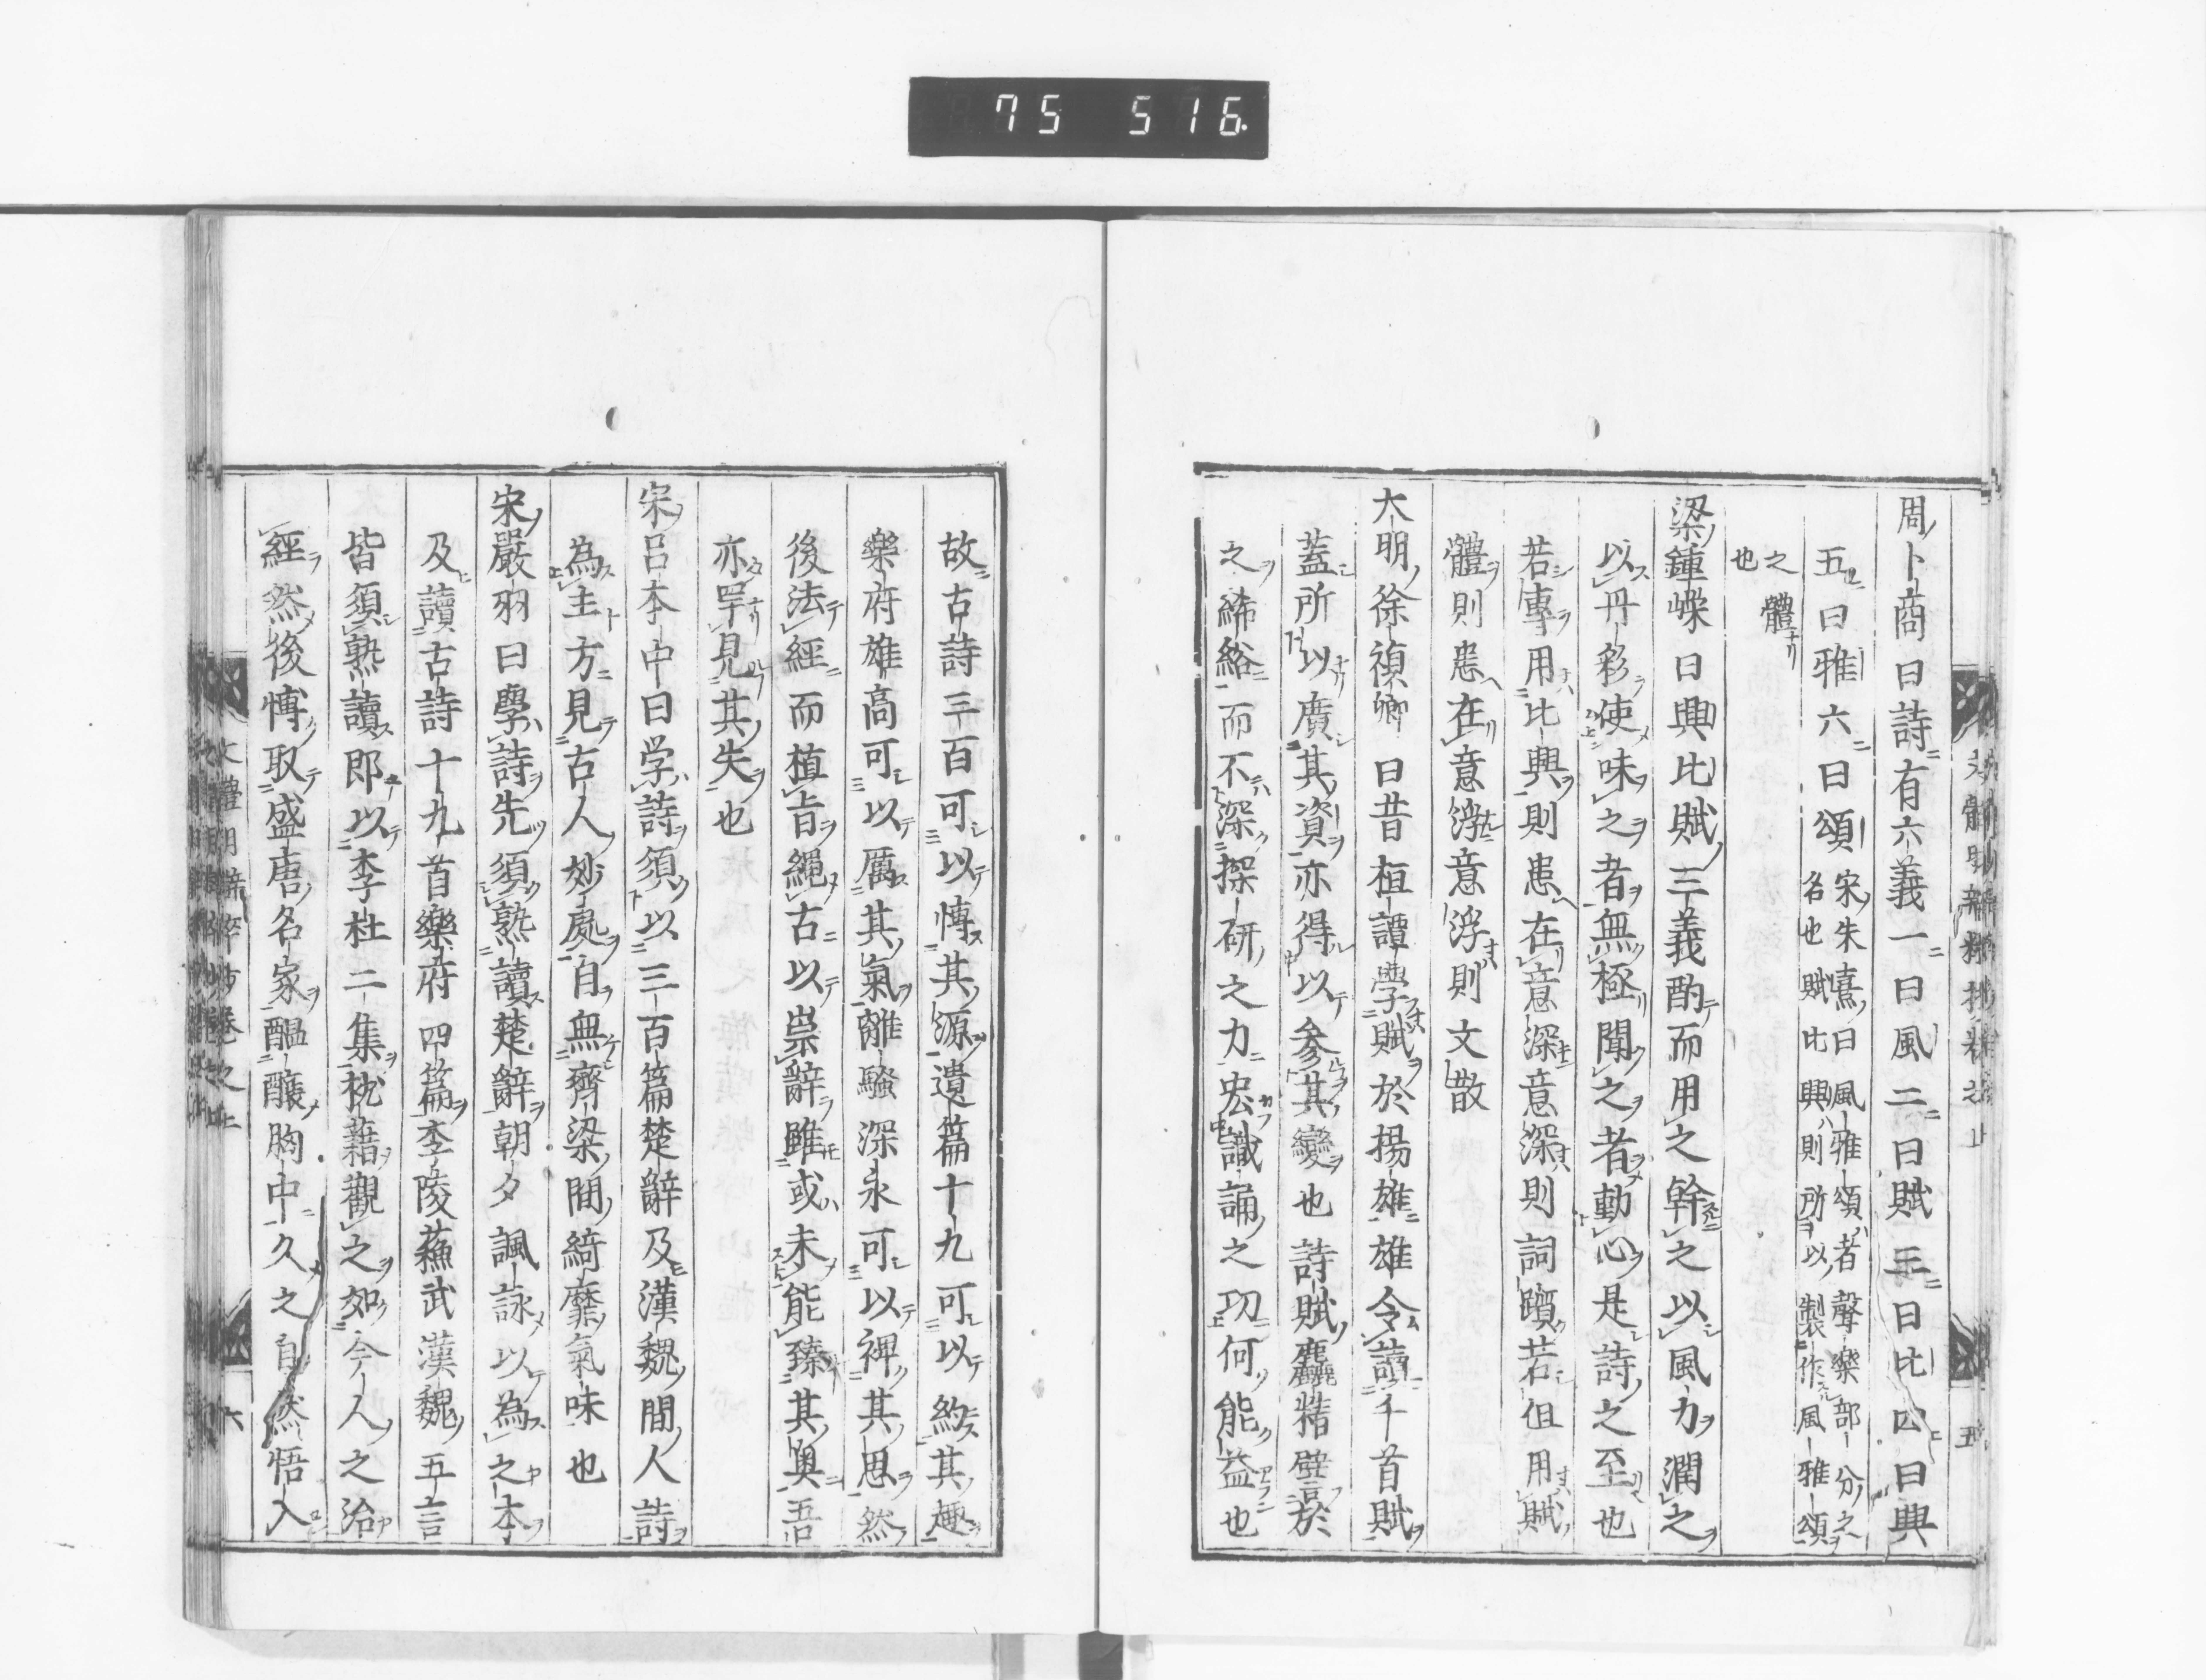 75 516.
周卜商曰詩有六義一曰風二曰賦三曰比四曰興
五曰雅六曰頌
宋朱熹曰風雅頌者聲樂部分之
名也賦比興則所以製作風雅頌
之體
也
梁鍾嶸曰興比賦三義酌而用之幹之以風力潤之
以丹彩使味之者無極聞之者動心是詩之至也
若專用比興則患在意深意深則詞躓若但用賦
體則患在意浮意浮則文散
大明徐禎卿曰昔桓譚學賦於揚雄雄令讀千首賦
蓋所以廣其資亦得以參其變也詩賦麤精譬於
之絺綌而不深探研之力宏識誦之功何能益也
五
故古詩三百可以博其源遺篇十九可以約其趣
樂府雄高可以厲其氣離騷深永可以裨其思然
後法經而植旨繩古以崇辭雖或未能臻其奧吾
亦罕見其失也
宋呂本中曰学詩須以三百篇楚辭及漢魏間人詩
為主方見古人妙處自無齊梁間綺靡氣味也
宋嚴羽曰學詩先須熟讀楚辭朝夕諷詠以為之本
及讀古詩十九首樂府四篇李陵蘇武漢魏五言
皆須熟讀即以李杜二集枕藉觀之如今人之治
經然後博取盛唐名家醞釀胸中久之自然悟入
六